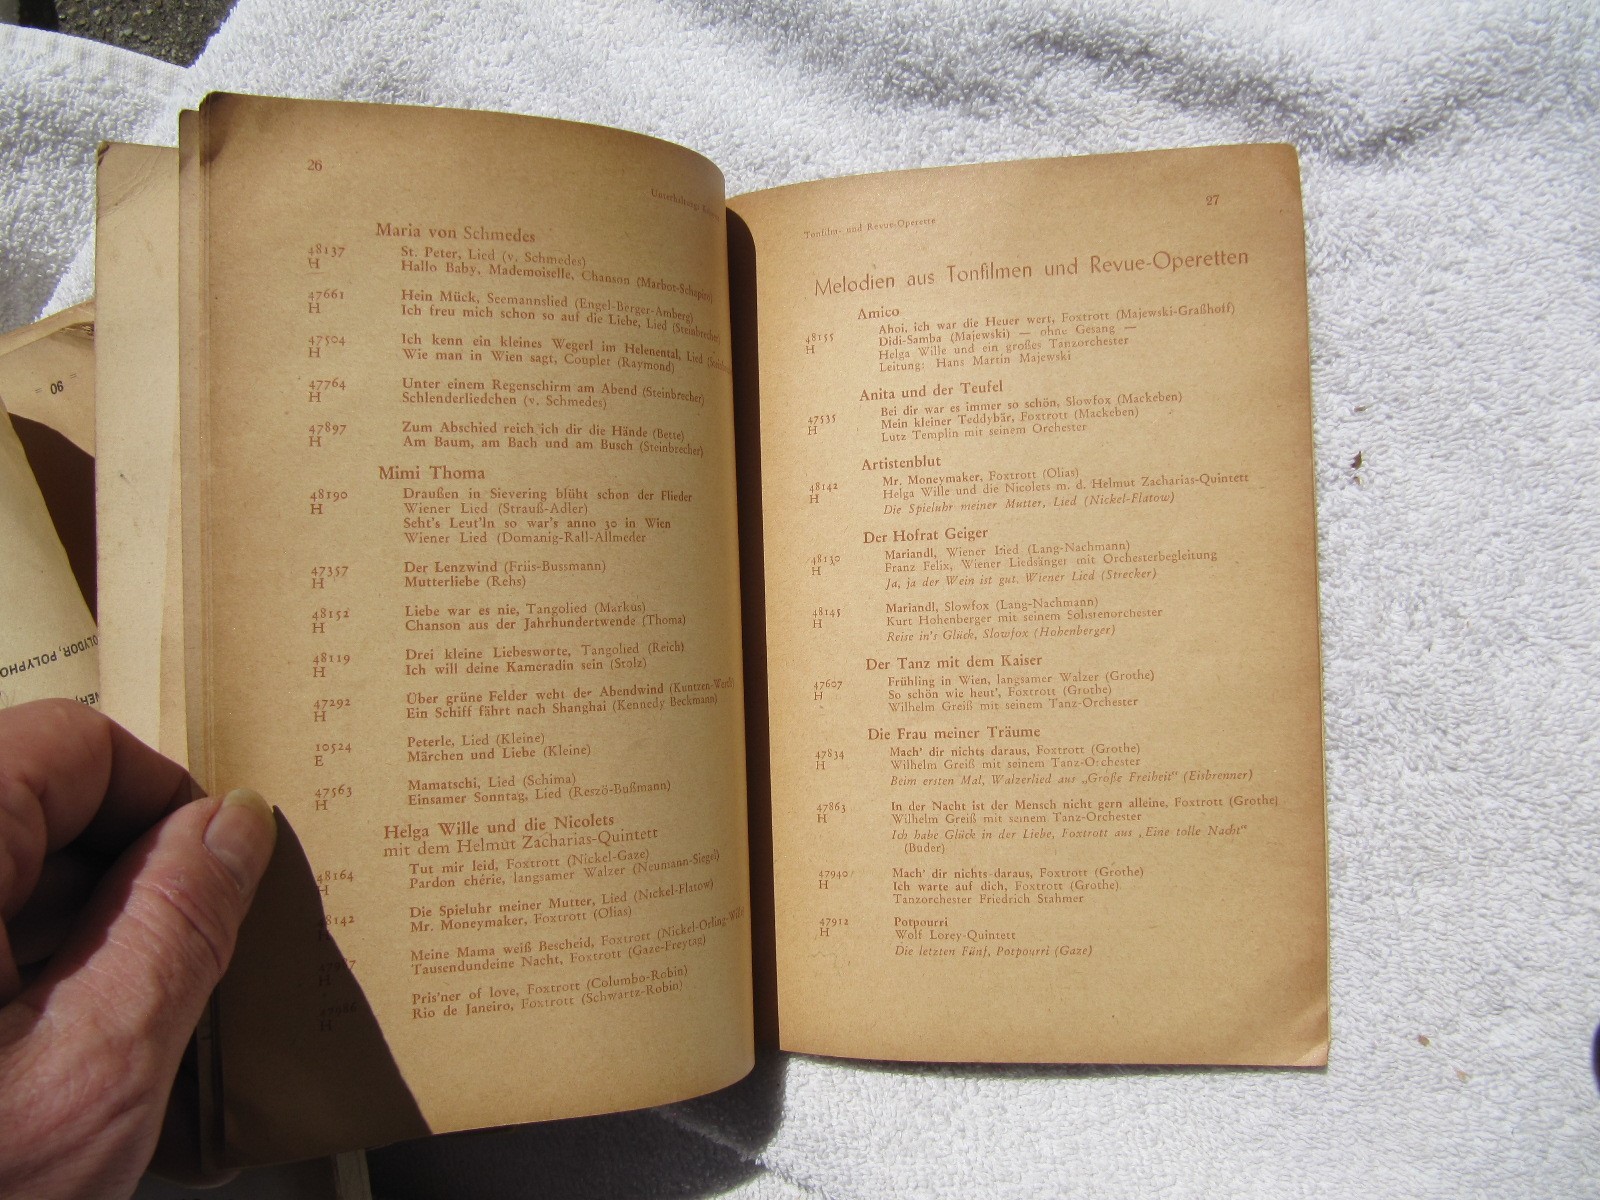 26
Maria von Schmedes
48137
H
St. Peter, Lied (v. Schmedes)
Hallo Baby, Mademoiselle, Chanson (Marbot-Schapiro)
47661
H
Hein Mück, Seemannslied (Engel-Berger-Amberg)
Ich freu mich schon so auf die Liebe, Lied (Steinbrecher)
47504
H
Ich kenn ein kleines Wegerl im Helenental, Lied
Wie man in Wien sagt, Coupler (Raymond)
47764
H
Unter einem Regenschirm am Abend (Steinbrecher)
Schlenderliedchen (v. Schmedes)
47897
H
Zum Abschied reich ich dir die Hände (Bette)
Am Baum, am Bach und am Busch (Steinbrecher)
Mimi Thoma
48190
H
Draußen in Sievering blüht schon der Flieder
Wiener Lied (Strauß-Adler)
Seht's Leut'ln so war's anno 30 in Wien
Wiener Lied (Domanig-Rall-Allmeder
47357
H
Der Lenzwind (Friis-Bussmann)
Mutterliebe (Rehs)
48152
H
Liebe war es nie, Tangolied (Markus)
Chanson aus der Jahrhundertwende (Thoma)
48119
H
Drei kleine Liebesworte, Tangolied (Reich)
Ich will deine Kameradin sein (Stolz)
47292
H
Über grüne Felder weht der Abendwind
Ein Schiff fährt nach Shanghai (Kennedy Beckmann)
10524
E
Peterle, Lied (Kleine)
Märchen und Liebe (Kleine)
47563
H
Mamatschi, Lied (Schima)
Einsamer Sonntag, Lied (Reszö-Bußmann)
Helga Wille und die Nicolets
mit dem Helmut Zacharias-Quintett
48164
H
Tut mir leid, Foxtrott (Nickel-Gaze)
Pardon chérie, langsamer Walzer (Neumann-Siegel)
48142
Die Spieluhr meiner Mutter, Lied (Nickel-Flatow)
Mr. Moneymaker, Foxtrott (Olias)
Meine Mama weiß Bescheid, Foxtrott
Tausendundeine Nacht, Foxtrott (Gaze-Freytag)
H
Pris'ner of love, Foxtrott (Columbo-Robin)
Rio de Janeiro, Foxtrott (Schwartz-Robin)
27
Tonfilm- und Revue-Operette
Melodien aus Tonfilmen und Revue-Operetten
Amico
48155
H
Ahoi, ich war die Heuer wert, Foxtrott (Majewski-Graßhoff)
Didi-Samba (Majewski) — ohne Gesang —
Helga Wille und ein großes Tanzorchester
Leitung: Hans Martin Majewski
Anita und der Teufel
47535
H
Bei dir war es immer so schön, Slowfox (Mackeben)
Mein kleiner Teddybär, Foxtrott (Mackeben)
Lutz Templin mit seinem Orchester
Artistenblut
48142
H
Mr. Moneymaker, Foxtrott (Olias)
Helga Wille und die Nicolets m. d. Helmut Zacharias-Quintett
Die Spieluhr meiner Mutter, Lied (Nickel-Flatow)
Der Hofrat Geiger
48130
H
Mariandl, Wiener Lied (Lang-Nachmann)
Franz Felix, Wiener Liedsänger mit Orchesterbegleitung
Ja, ja der Wein ist gut, Wiener Lied (Strecker)
48145
H
Mariandl, Slowfox (Lang-Nachmann)
Kurt Hohenberger mit seinem Solistenorchester
Reise in's Glück, Slowfox (Hohenberger)
Der Tanz mit dem Kaiser
47607
H
Frühling in Wien, langsamer Walzer (Grothe)
So schön wie heut', Foxtrott (Grothe)
Wilhelm Greiß mit seinem Tanz-Orchester
Die Frau meiner Träume
47834
H
Mach' dir nichts daraus, Foxtrott (Grothe)
Wilhelm Greiß mit seinem Tanz-Orchester
Beim ersten Mal, Walzerlied aus „Große Freiheit" (Eisbrenner)
47863
H
In der Nacht ist der Mensch nicht gern alleine, Foxtrott (Grothe)
Wilhelm Greiß mit seinem Tanz-Orchester
Ich habe Glück in der Liebe, Foxtrott aus „Eine tolle Nacht"
(Buder)
47940
H
Mach' dir nichts daraus, Foxtrott (Grothe)
Ich warte auf dich, Foxtrott (Grothe)
Tanzorchester Friedrich Stahmer
47912
H
Potpourri
Wolf Lorey-Quintett
Die letzten Fünf, Potpourri (Gaze)
= 90 =